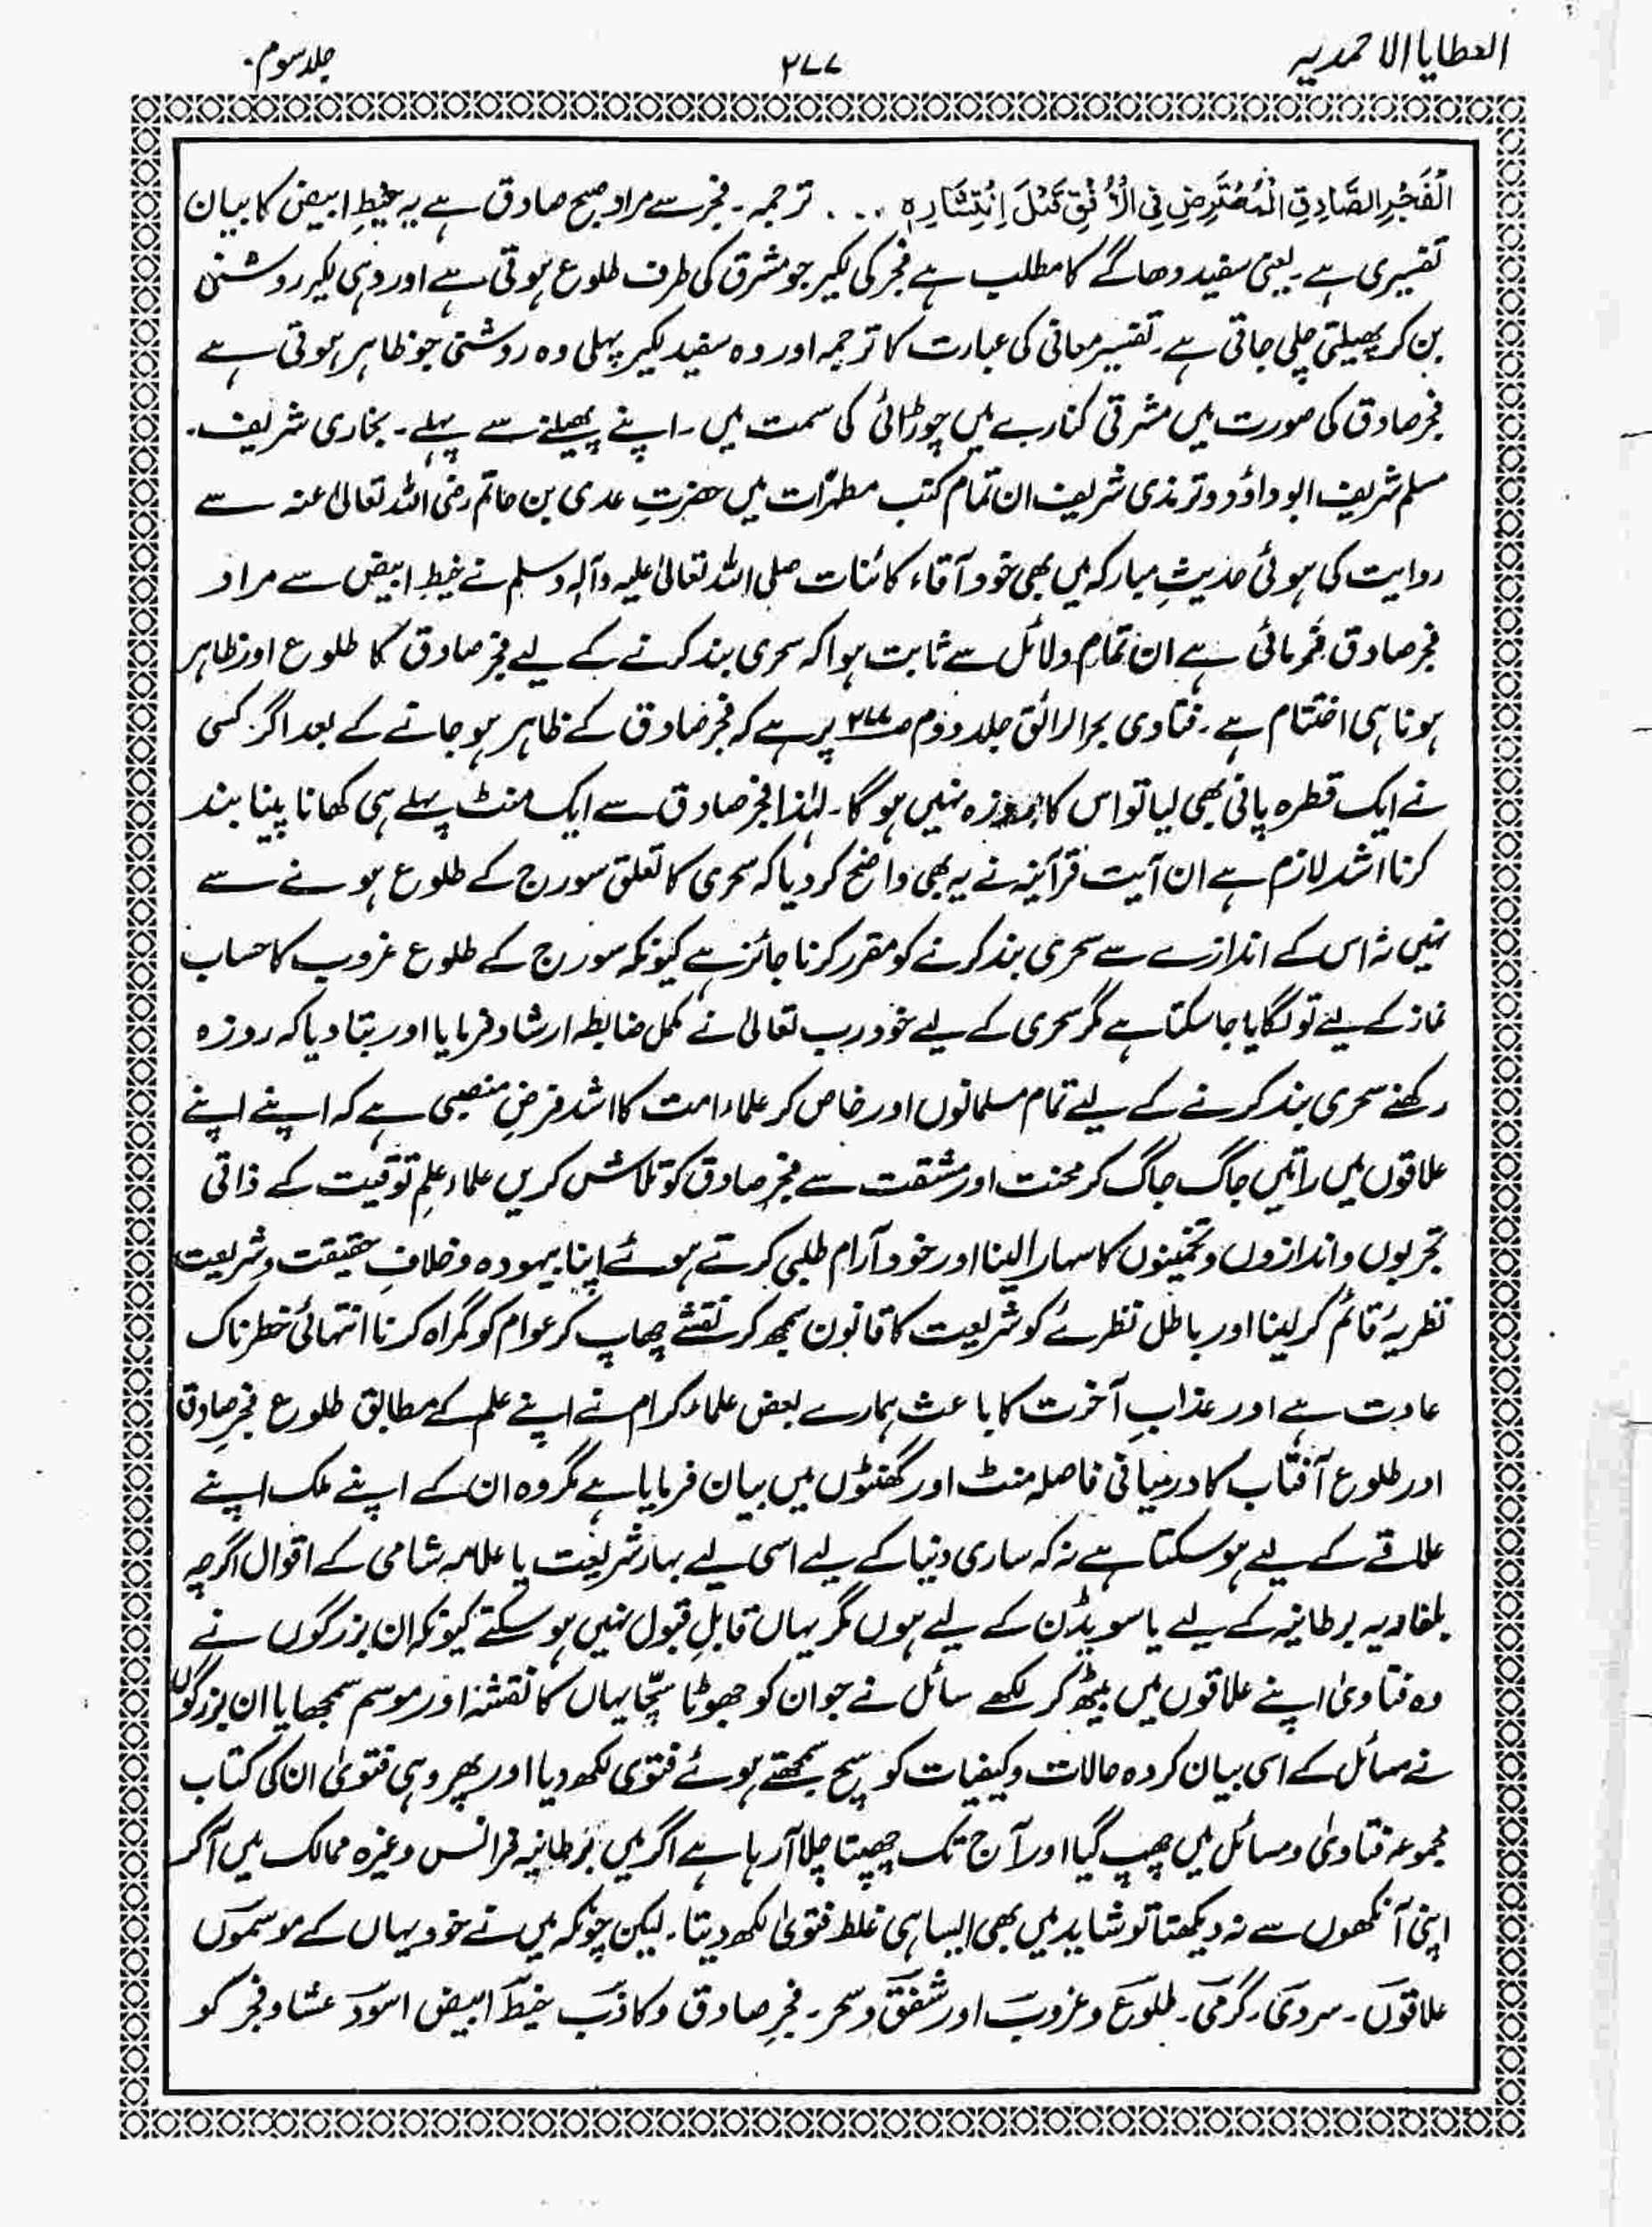 العطایا الاحمدیہ
۲۷۷
جلد سوم.
اَلْفَجْرِ الصَّادِقِ الْمُعْتَرِضِ فِی الْاُفُقِ قَبْلَ اِنْتِشَارِہٖ ... ترجمہ۔ فجر سے مراد صبح صادق ہے یہ خیطِ ابیض کا بیان
تفسیری ہے۔ یعنی سفید دھاگے کا مطلب ہے فجر کی لکیر جو مشرق کی طرف طلوع ہوتی ہے اور وہی لکیر روشنی
بن کر پھیلتی چلی جاتی ہے۔ تفسیر معانی کی عبارت کا ترجمہ اور وہ سفید لکیر پہلی وہ روشنی جو ظاہر ہوتی ہے
فجر صادق کی صورت میں مشرقی کنارے میں چوڑائی کی سمت میں۔ اپنے پھیلنے سے پہلے۔ بخاری شریف۔
مسلم شریف ابو داؤد و ترمذی شریف ان تمام کتب مطہرّات میں حضرتِ عدی بن حاتم رضی اللہ تعالیٰ عنہ سے
روایت کی ہوئی حدیثِ مبارکہ میں بھی خود آقاء کائنات صلی اللہ تعالیٰ علیہ وآلہٖ وسلم نے خیطِ ابیض سے مراد
فجر صادق فرمائی ہے ان تمام دلائل سے ثابت ہوا کہ سحری بند کرنے کے لیے فجر صادق کا طلوع اور ظاہر
ہونا ہی اختتام ہے۔ فتاوی بحر الرائق جلد دوم صـ پر ہے کہ فجر صادق کے ظاہر ہو جانے کے بعد اگر کسی
نے ایک قطرہ پانی بھی لیا تو اس کا روزہ نہیں ہو گا۔ لہٰذا فجر صادق سے ایک منٹ پہلے ہی کھانا پینا بند
کرنا اشد لازم ہے ان آیت قرآنیہ نے یہ بھی واضح کر دیا کہ سحری کا تعلق سورج کے طلوع ہونے سے
نہیں نہ اس کے اندازے سے سحری بند کرنے کو مقرر کرنا جائز ہے کیونکہ سورج کے طلوع غروب کا حساب
نماز کے لیے تو لگایا جا سکتا ہے مگر سحری کے لیے خود رب تعالیٰ نے مکمل ضابطہ ارشاد فرمایا اور بتا دیا کہ روزہ
رکھنے سحری بند کرنے کے لیے تمام مسلمانوں اور خاص کر علماء امت کا اشد فرضِ منصبی ہے کہ اپنے اپنے
علاقوں میں راتیں جاگ جاگ کر محنت اور مشقت سے فجر صادق کو تلاش کریں علماءِ علمِ توقیت کے ذاتی
تجربوں و اندازوں و تخمینوں کا سہارا لینا اور خود آرام طلبی کرتے ہوئے اپنا بیہودہ و خلافِ حقیقت و شریعت
نظریہ قائم کر لینا اور باطل نظرئے کو شریعت کا قانون سمجھ کر نقشے چھاپ کر عوام کو گمراہ کرنا انتہائی خطرناک
عادت ہے اور عذابِ آخرت کا باعث ہمارے بعض علماء کرام نے اپنے علم کے مطابق طلوع فجرِ صادق
اور طلوع آفتاب کا درمیانی فاصلہ منٹ اور گھنٹوں میں بیان فرمایا ہے مگر وہ ان کے اپنے ملک اپنے
علاقے کے لیے ہو سکتا ہے نہ کہ ساری دنیا کے لیے اسی لیے بہار شریعت یا علامہ شامی کے اقوال اگرچہ
بلغاریہ برطانیہ کے لیے یا سویڈن کے لیے ہوں مگر یہاں قابلِ قبول نہیں ہو سکتے کیونکہ ان بزرگوں نے
وہ فتاویٰ اپنے علاقوں میں بیٹھ کر لکھے سائل نے جو ان کو جھوٹا سچّا یہاں کا نقشہ اور موسم سمجھایا ان بزرگوں
نے سائل کے اسی بیان کردہ حالات و کیفیات کو سچ سمجھتے ہوئے فتویٰ لکھ دیا اور پھر وہی فتویٰ ان کی کتاب
مجموعہ فتاویٰ و مسائل میں چھپ گیا اور آج تک چھپتا چلا آ رہا ہے اگر میں برطانیہ فرانس وغیرہ ممالک میں آکر
اپنی آنکھوں سے نہ دیکھتا تو شاید میں بھی ایسا ہی غلط فتویٰ لکھ دیتا۔ لیکن چونکہ میں نے خود یہاں کے موسموں
علاقوں۔ سردی۔ گرمی۔ طلوع و غروب اور شفق و سحر۔ فجرِ صادق و کاذب خیط ابیض اسود عشا و فجر کو